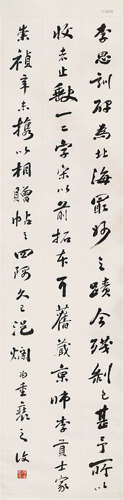 李思訓碑為北海最妙之蹟今殘剝已甚予所以
收者止缺一二字宋以前拓本可舊藏京師李貢士家
崇禎辛未携以相贈帖之四隅久已浥爛為重裝之